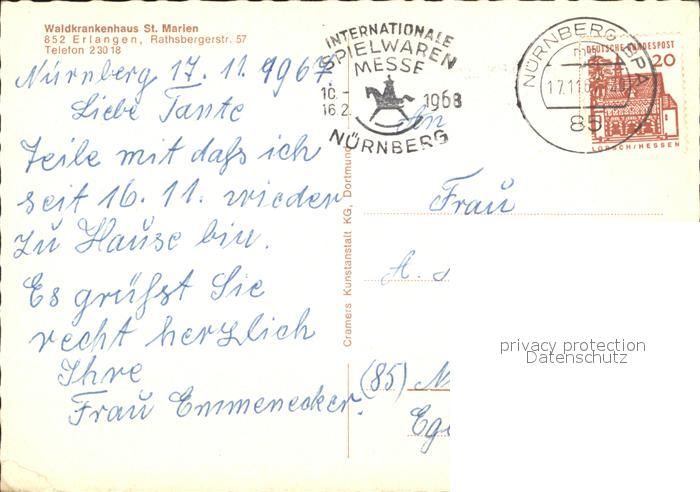 Waldkrankenhaus St. Marien
852 Erlangen, Rathsbergerstr. 57
Telefon 23018
Nürnberg 17.11.1967
Liebe Tante
Teile mit daß ich
seit 16.11. wieder
zu Hause bin.
Es grüßst Sie
recht herzlich
Ihre
Frau Emmenecker.
Cramers Kunstanstalt KG, Dortmund
INTERNATIONALE
SPIELWAREN
MESSE
10.-
16.2.
1968
NÜRNBERG
NÜRNBERG
85
DEUTSCHE BUNDESPOST
20
LORSCH/HESSEN
An
Frau
A.
(85) N
Eg
privacy protection
Datenschutz